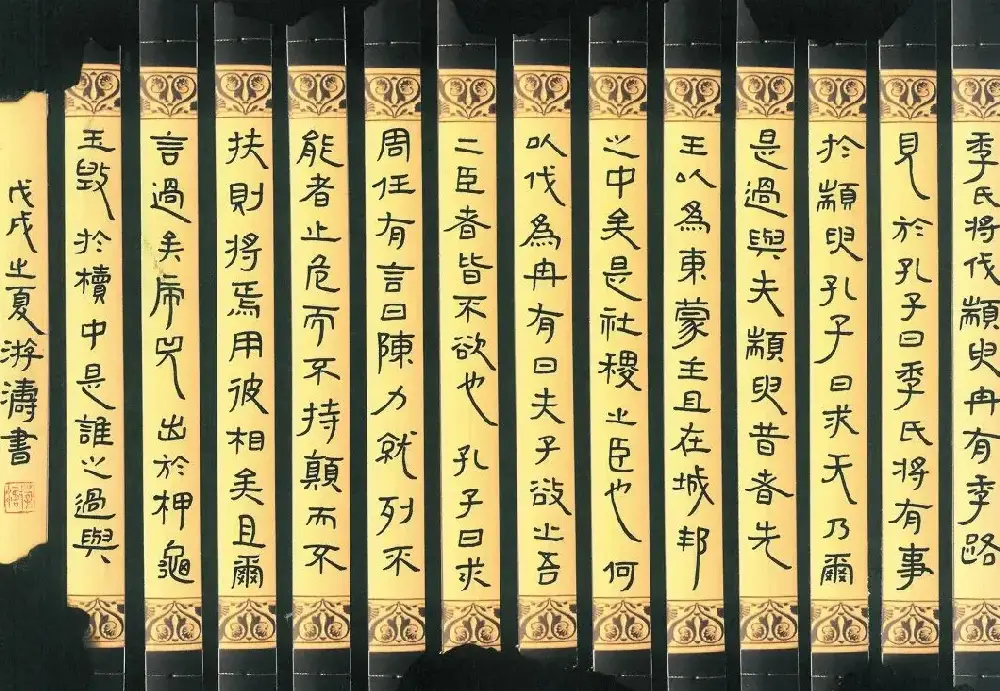 季氏將伐顓臾冉有季路
見於孔子曰季氏將有事
於顓臾孔子曰求无乃爾
是過與夫顓臾昔者先
王以爲東蒙主且在城邦
之中矣是社稷之臣也何
以伐爲冉有曰夫子欲之吾
二臣者皆不欲也孔子曰求
周任有言曰陳力就列不
能者止危而不持顛而不
扶則將焉用彼相矣且爾
言過矣虎兕出於柙龜
玉毀於櫝中是誰之過與
戊戌之夏游濤書